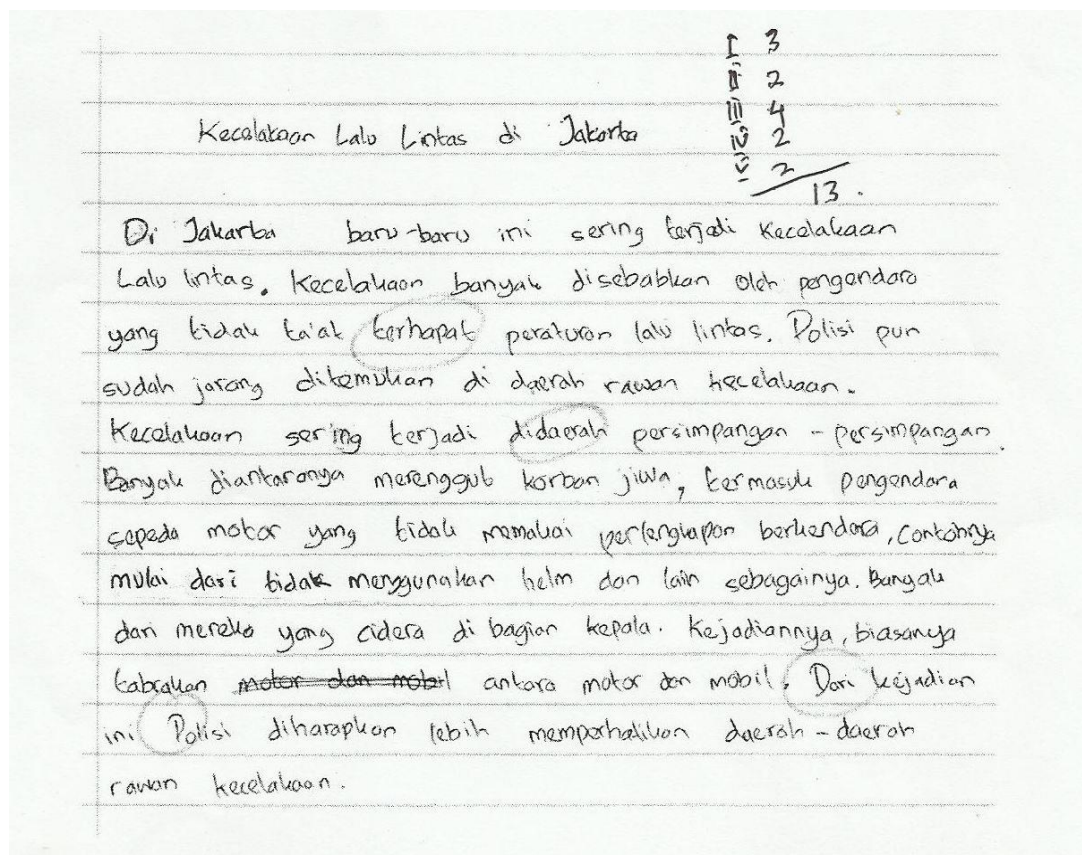 I 3
II 2
III 4
IV 2
V 2
13.
Kecelakaan Lalu Lintas di Jakarta
Di Jakarta baru-baru ini sering terjadi Kecelakaan
Lalu lintas. Kecelakaan banyak disebabkan oleh pengendara
yang tidak ta'at terhapat peraturan lalu lintas. Polisi pun
sudah jarang ditemukan di daerah rawan kecelakaan.
Kecelakaan sering terjadi didaerah persimpangan - persimpangan.
Banyak diantaranya merenggut korban jiwa, termasuk pengendara
sepeda motor yang tidak memakai perlengkapan berkendara, Contohnya
mulai dari tidak menggunakan helm dan lain sebagainya. Banyak
dari mereka yang cidera di bagian kepala. Kejadiannya, biasanya
tabrakan motor dan mobil antara motor dan mobil. Dari kejadian
ini Polisi diharapkan lebih memperhatikan daerah - daerah
rawan kecelakaan.